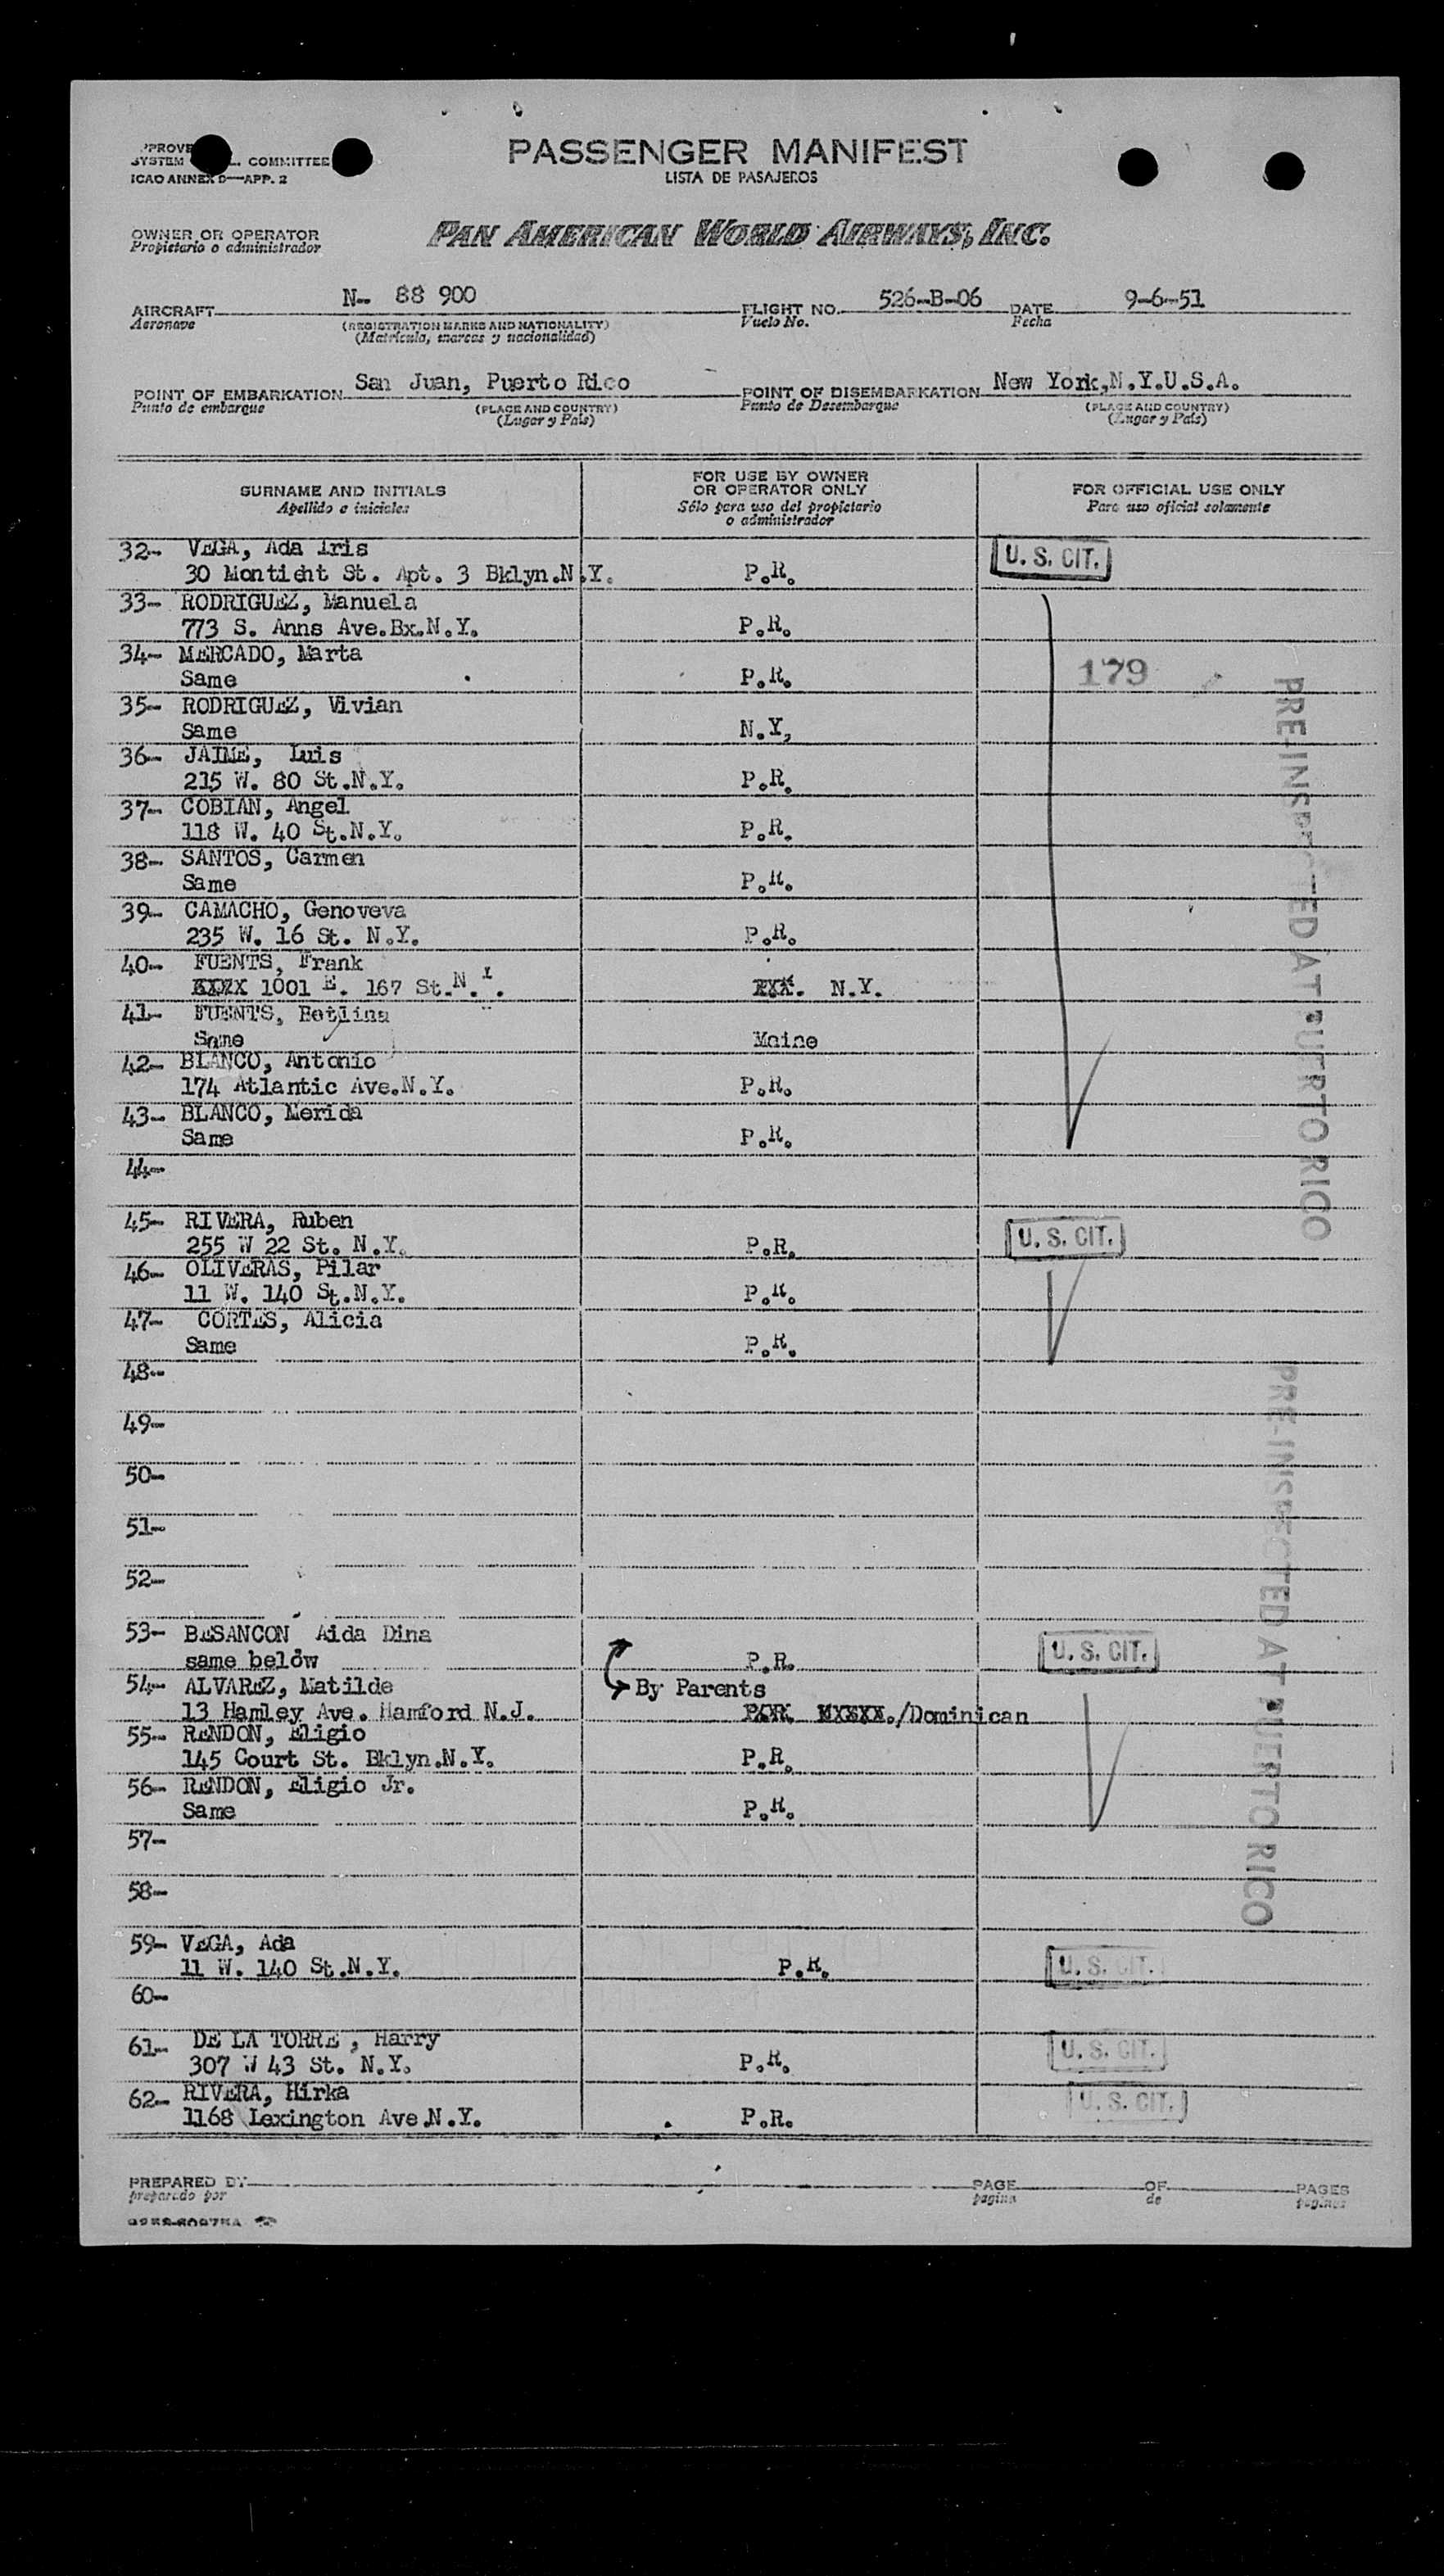 SYSTEM COMMITTEE
ICAO ANNEX D—APP. 2
PASSENGER MANIFEST
LISTA DE PASAJEROS
OWNER OR OPERATOR
Propietario o administrador
PAN AMERICAN WORLD AIRWAYS, INC.
AIRCRAFT N- 88 900 FLIGHT NO. 526-B-06 DATE 9-6-51
Aeronave (REGISTRATION MARKS AND NATIONALITY) Vuelo No. Fecha
(Matricula, marcas y nacionalidad)
POINT OF EMBARKATION San Juan, Puerto Rico POINT OF DISEMBARKATION New York,N.Y.U.S.A.
Punto de embarque (PLACE AND COUNTRY) Punto de Desembarque (PLACE AND COUNTRY)
(Lugar y País) (Lugar y País)
SURNAME AND INITIALS
Apellido e iniciales
FOR USE BY OWNER
OR OPERATOR ONLY
Sólo para uso del propietario
o administrador
FOR OFFICIAL USE ONLY
Para uso oficial solamente
32- VEGA, Ada Iris
30 Montieht St. Apt. 3 Bklyn.N.Y. P.R. U. S. CIT.
33- RODRIGUEZ, Manuela
773 S. Anns Ave.Bx.N.Y. P.R.
34- MERCADO, Marta
Same P.R. 179
35- RODRIGUEZ, Vivian
Same N.Y,
36- JAIME, Luis
215 W. 80 St.N.Y. P.R.
37- COBIAN, Angel
118 W. 40 St.N.Y. P.R.
38- SANTOS, Carmen
Same P.R.
39- CAMACHO, Genoveva
235 W. 16 St. N.Y. P.R.
40- FUENTS, Frank
1001 E. 167 St.N.Y. N.Y.
41- FUENTS,
Same Maine
42- BLANCO, Antonio
174 Atlantic Ave.N.Y. P.R.
43- BLANCO, Merida
Same P.R.
44-
PRE-INSPECTED AT PUERTO RICO
45- RIVERA, Ruben
255 W 22 St. N.Y. P.R. U. S. CIT.
46- OLIVERAS, Pilar
11 W. 140 St.N.Y. P.R.
47- CORTES, Alicia
Same P.R.
48-
49-
50-
51-
52-
53- BESANCON Aida Dina
same below P.R. U. S. CIT.
54- ALVAREZ, Matilde By Parents
13 Hamley Ave. Hamford N.J. /Dominican
55- RENDON, Eligio
145 Court St. Bklyn.N.Y. P.R.
56- RENDON, Eligio Jr.
Same P.R.
57-
58-
PRE-INSPECTED AT PUERTO RICO
59- VEGA, Ada
11 W. 140 St.N.Y. P.R. U. S. CIT.
60-
61- DE LA TORRE , Harry
307 W 43 St. N.Y. P.R. U. S. CIT.
62- RIVERA, Hirka
1168 Lexington Ave.N.Y. P.R. U. S. CIT.
PREPARED BY PAGE OF PAGES
preparado por pagina de paginas